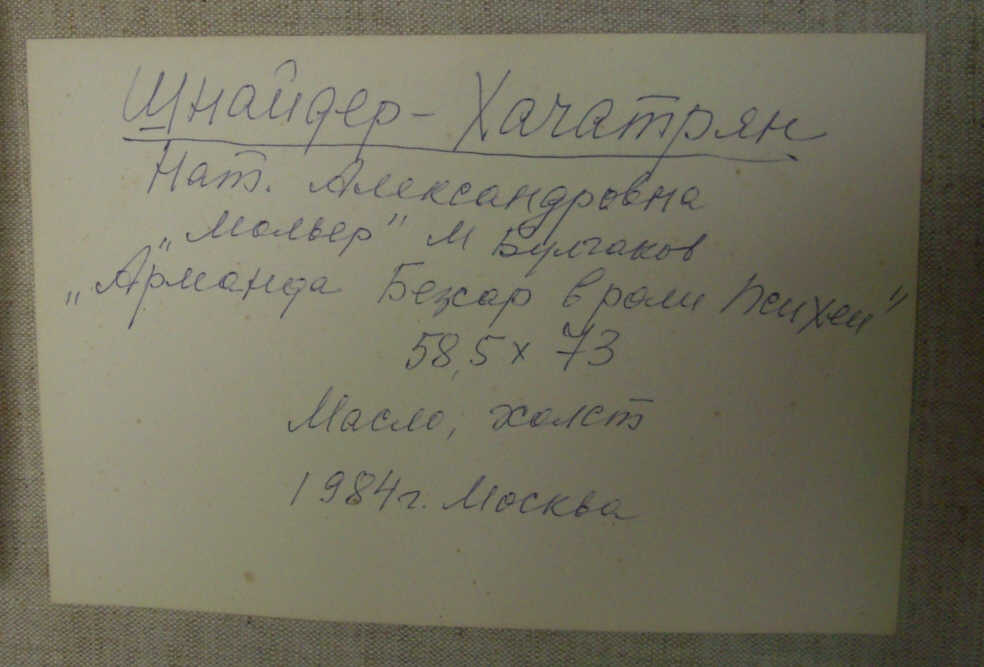 Шнайдер - Хачатрян
Нат. Александровна
„Мольер" М Булгаков
„Арманда Безсар в роли Психеи"
58,5 х 73
Масло, холст
1984г. Москва